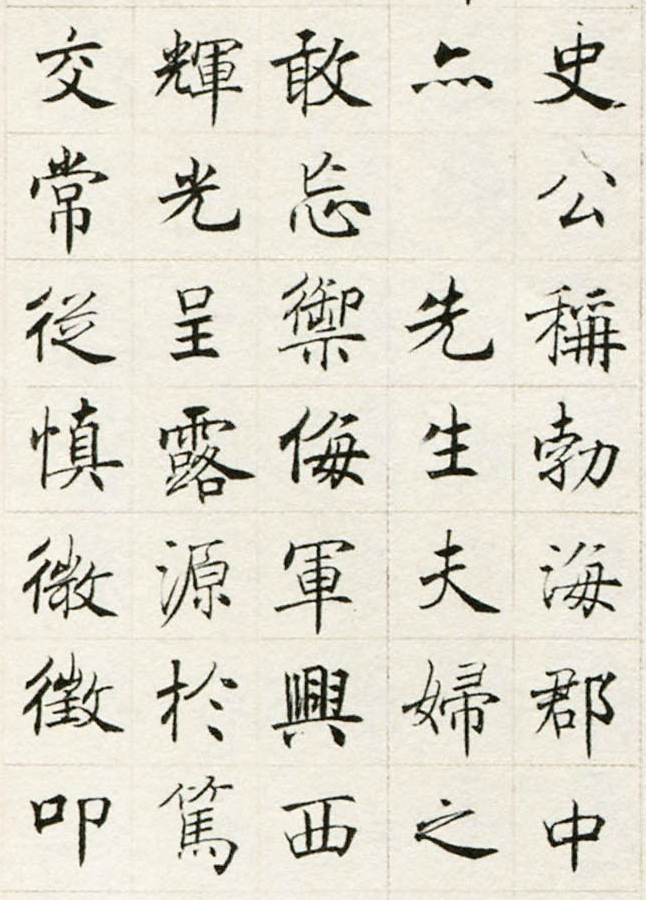 史公稱勃海郡中
亦 先生夫婦之
敢忘禦侮軍興西
輝光呈露源於篤
交常從慎微徵叩